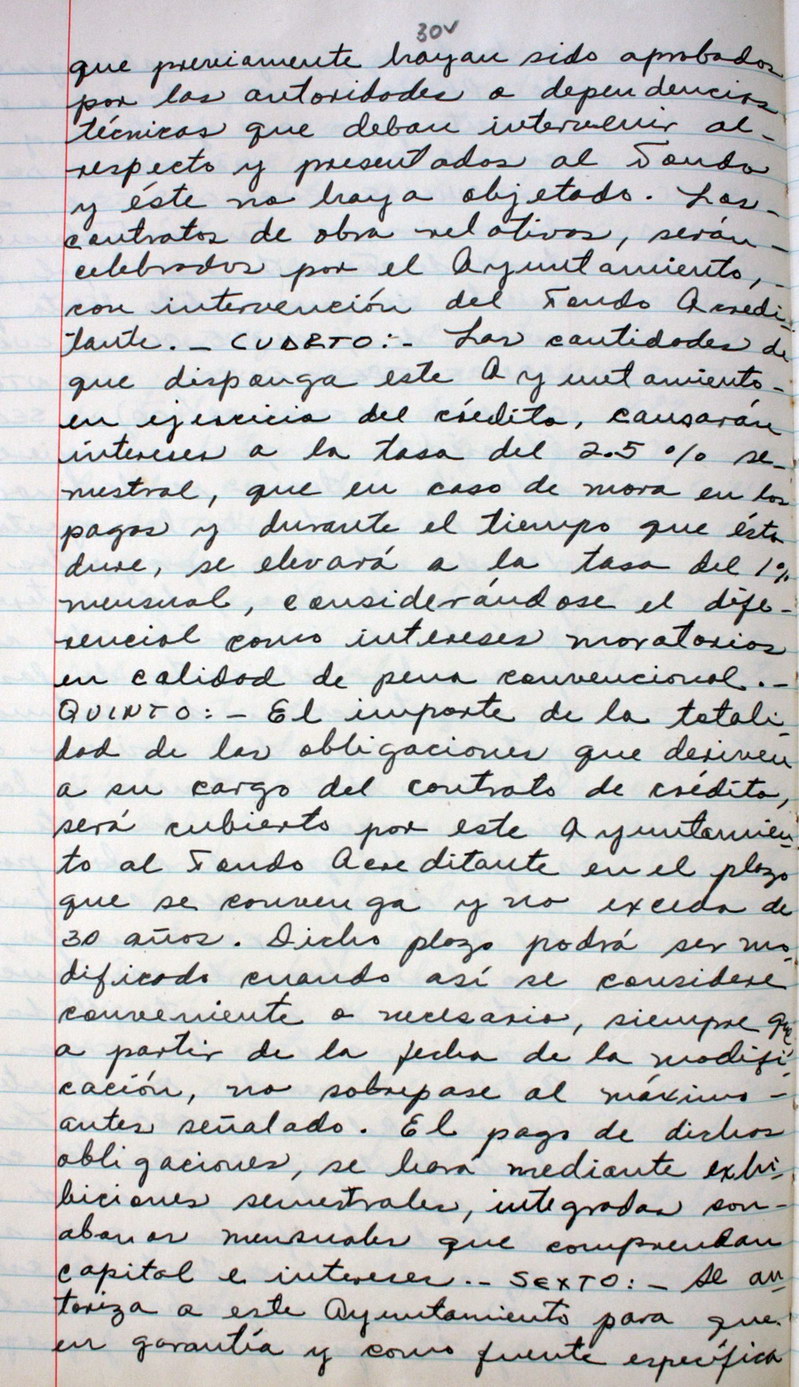 30v
que previamente hayan sido aprobados
por las autoridades o dependencias
técnicas que deban intervenir al-
respecto y presentados al Fondo
y éste no haya objetado. Los-
contratos de obra relativos, serán-
celebrados por el Ayuntamiento,-
con intervención del Fondo Acredi-
tante.- CUARTO:- Las cantidades de
que disponga este Ayuntamiento-
en ejercicio del crédito, causarán
intereses a la tasa del 2.5 % se-
mestral, que en caso de mora en los
pagos y durante el tiempo que ésta
dure, se elevará a la tasa del 1%
mensual, considerándose el dife-
rencial como intereses moratorios
en calidad de pena convencional.-
QUINTO:- El importe de la totali-
dad de las obligaciones que deriven
a su cargo del contrato de crédito,
será cubierto por este Ayuntamien-
to al Fondo Acreditante en el plazo
que se convenga y no exceda de
30 años. Dicho plazo podrá ser mo-
dificado cuando así se considere
conveniente o necesario, siempre que
a partir de la fecha de la modifi-
cación, no sobrepase al máximo-
antes señalado. El pago de dichas
obligaciones, se hará mediante exhi-
biciones semestrales, integradas son-
abonos mensuales que comprendan
capital e intereses.- SEXTO:- Se au-
toriza a este Ayuntamiento para que-
en garantía y como fuente específica